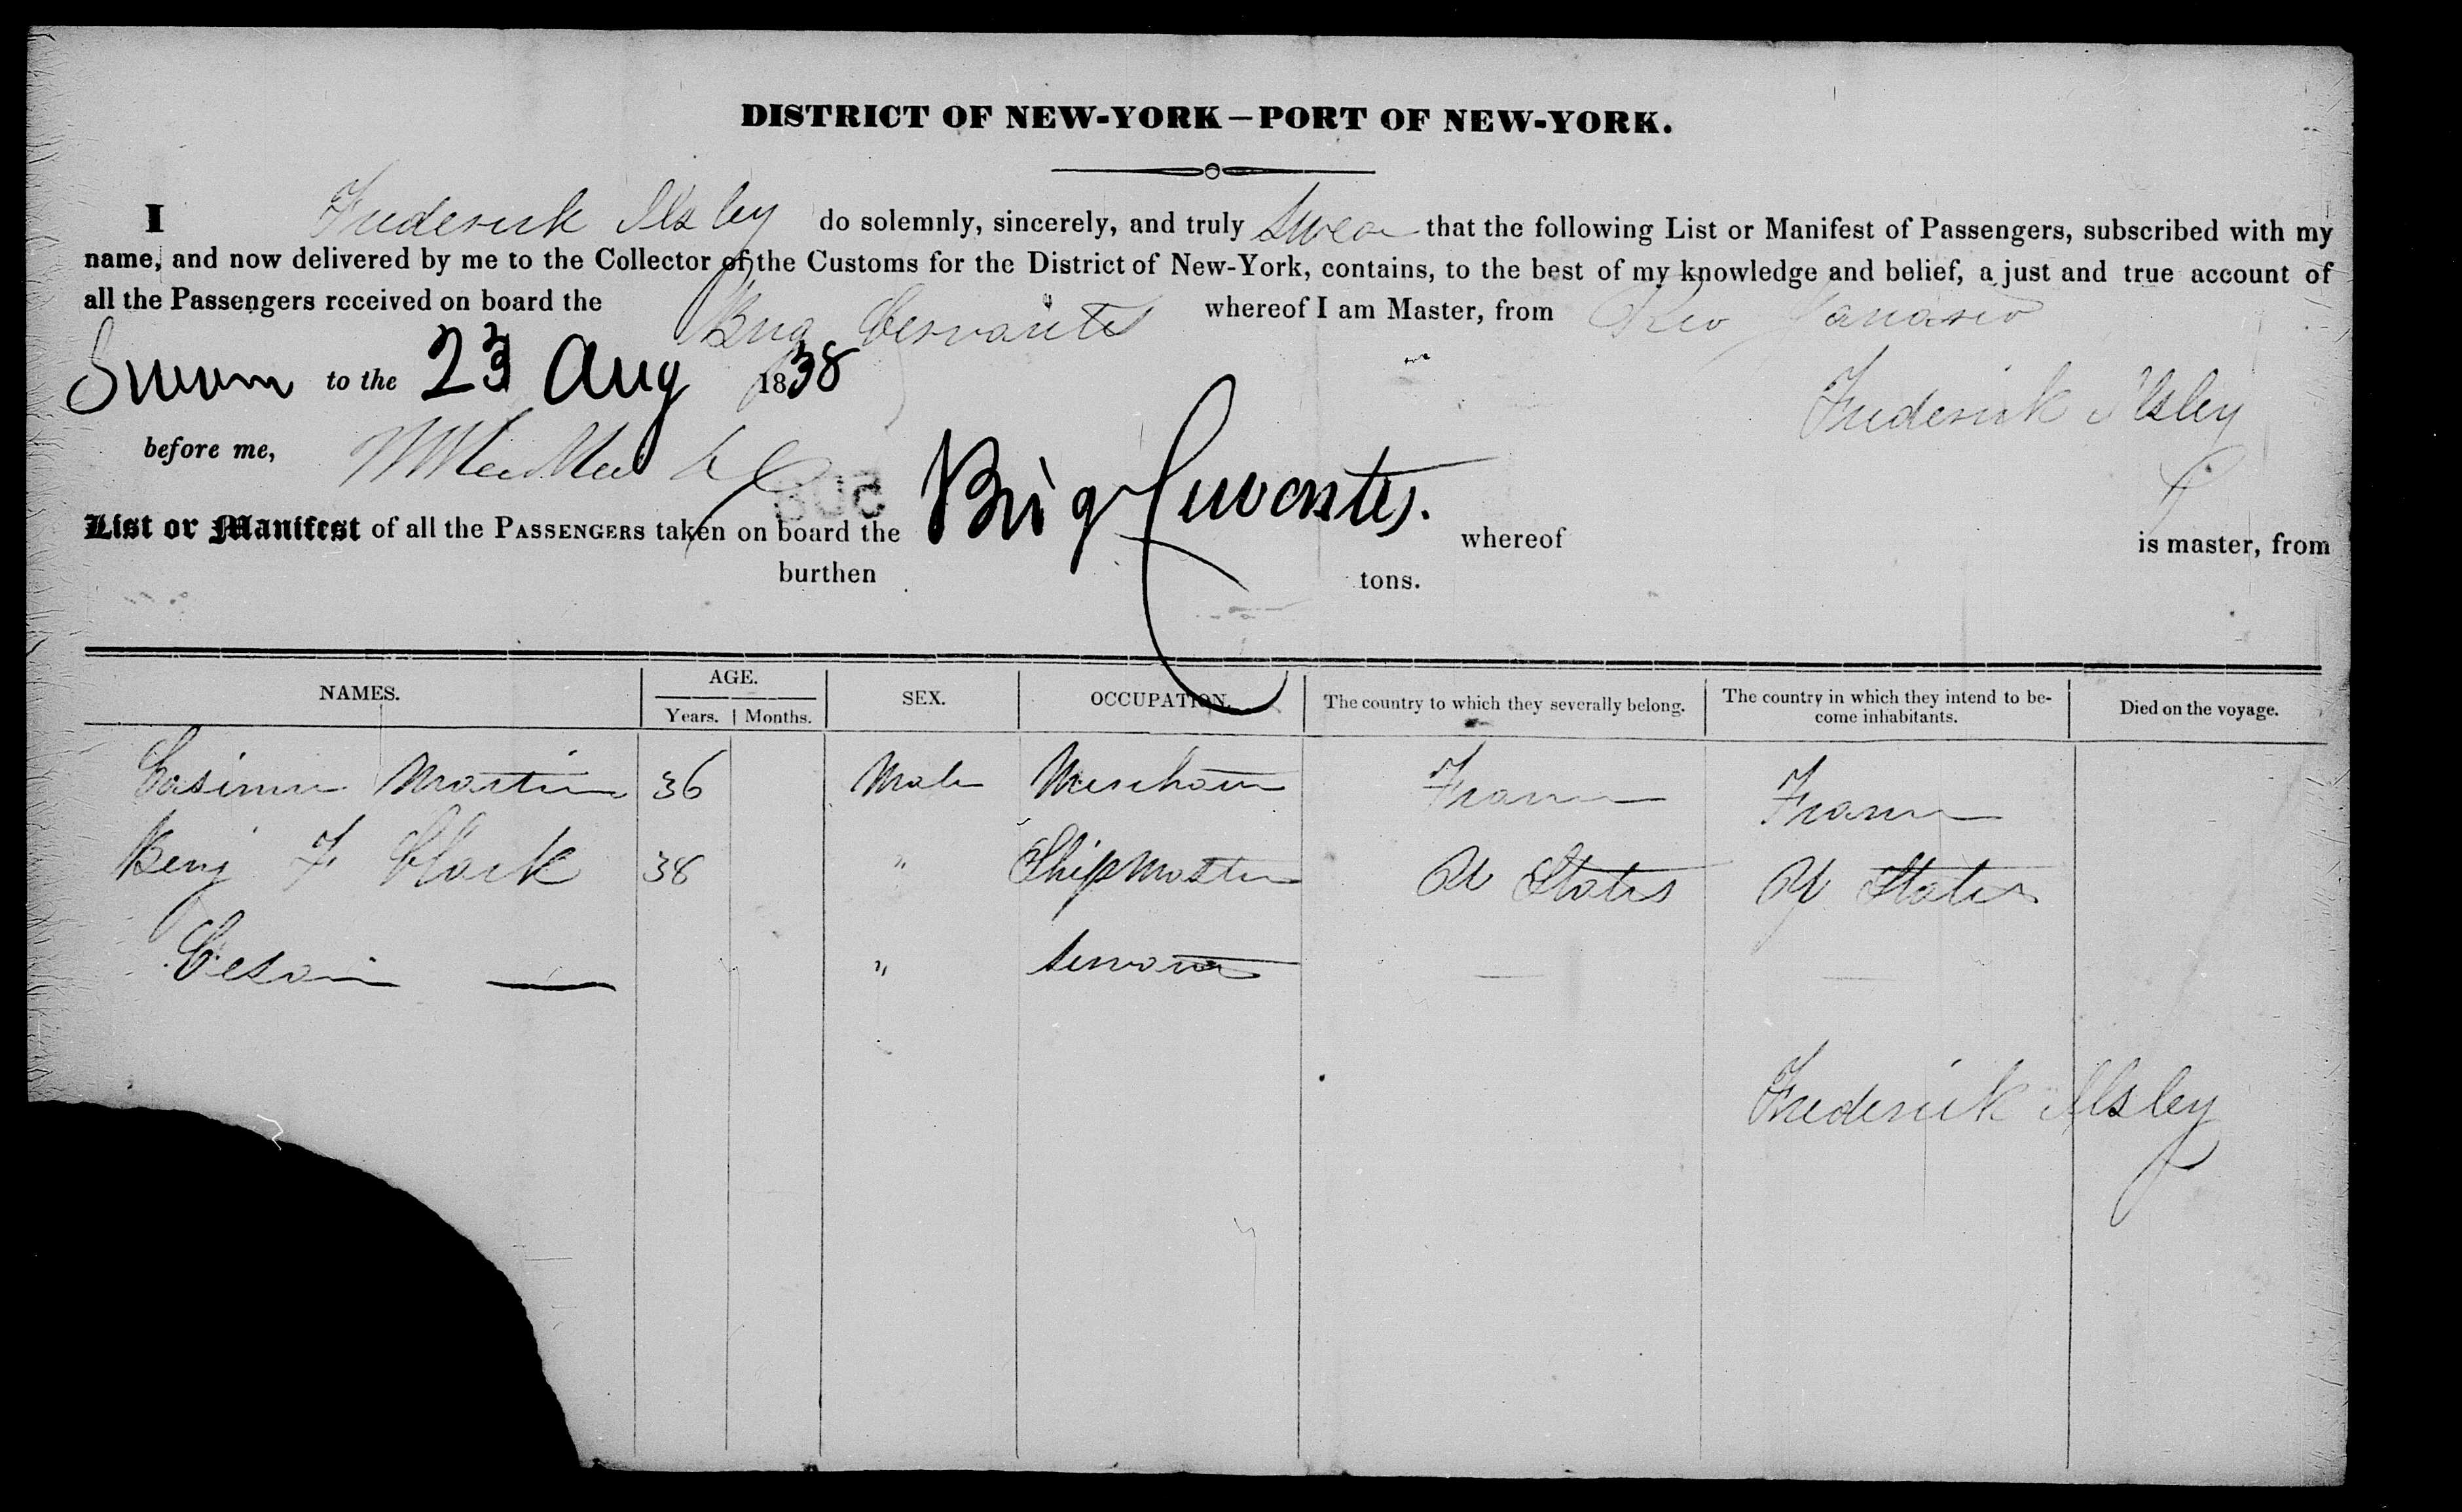 DISTRICT OF NEW-YORK—PORT OF NEW-YORK.
I Frederick Ilsley do solemnly, sincerely, and truly Swear that the following List or Manifest of Passengers, subscribed with my
name, and now delivered by me to the Collector of the Customs for the District of New-York, contains, to the best of my knowledge and belief, a just and true account of
all the Passengers received on board the Brig Cervantes whereof I am Master, from Rio Janario
Sworn to the 23 Aug 1838
Frederick Ilsley
before me,
List or Manifest of all the PASSENGERS taken on board the Brig Cervantes. whereof is master, from
burthen tons.
NAMES. AGE. SEX. OCCUPATION. The country to which they severally belong. The country in which they intend to become inhabitants. Died on the voyage.
Years. Months.
Casimir Martin 36 Male Merchant France France
Benj F Clark 38 " Shipmaster U States U States
Cesar — " Servant — —
Frederick Ilsley